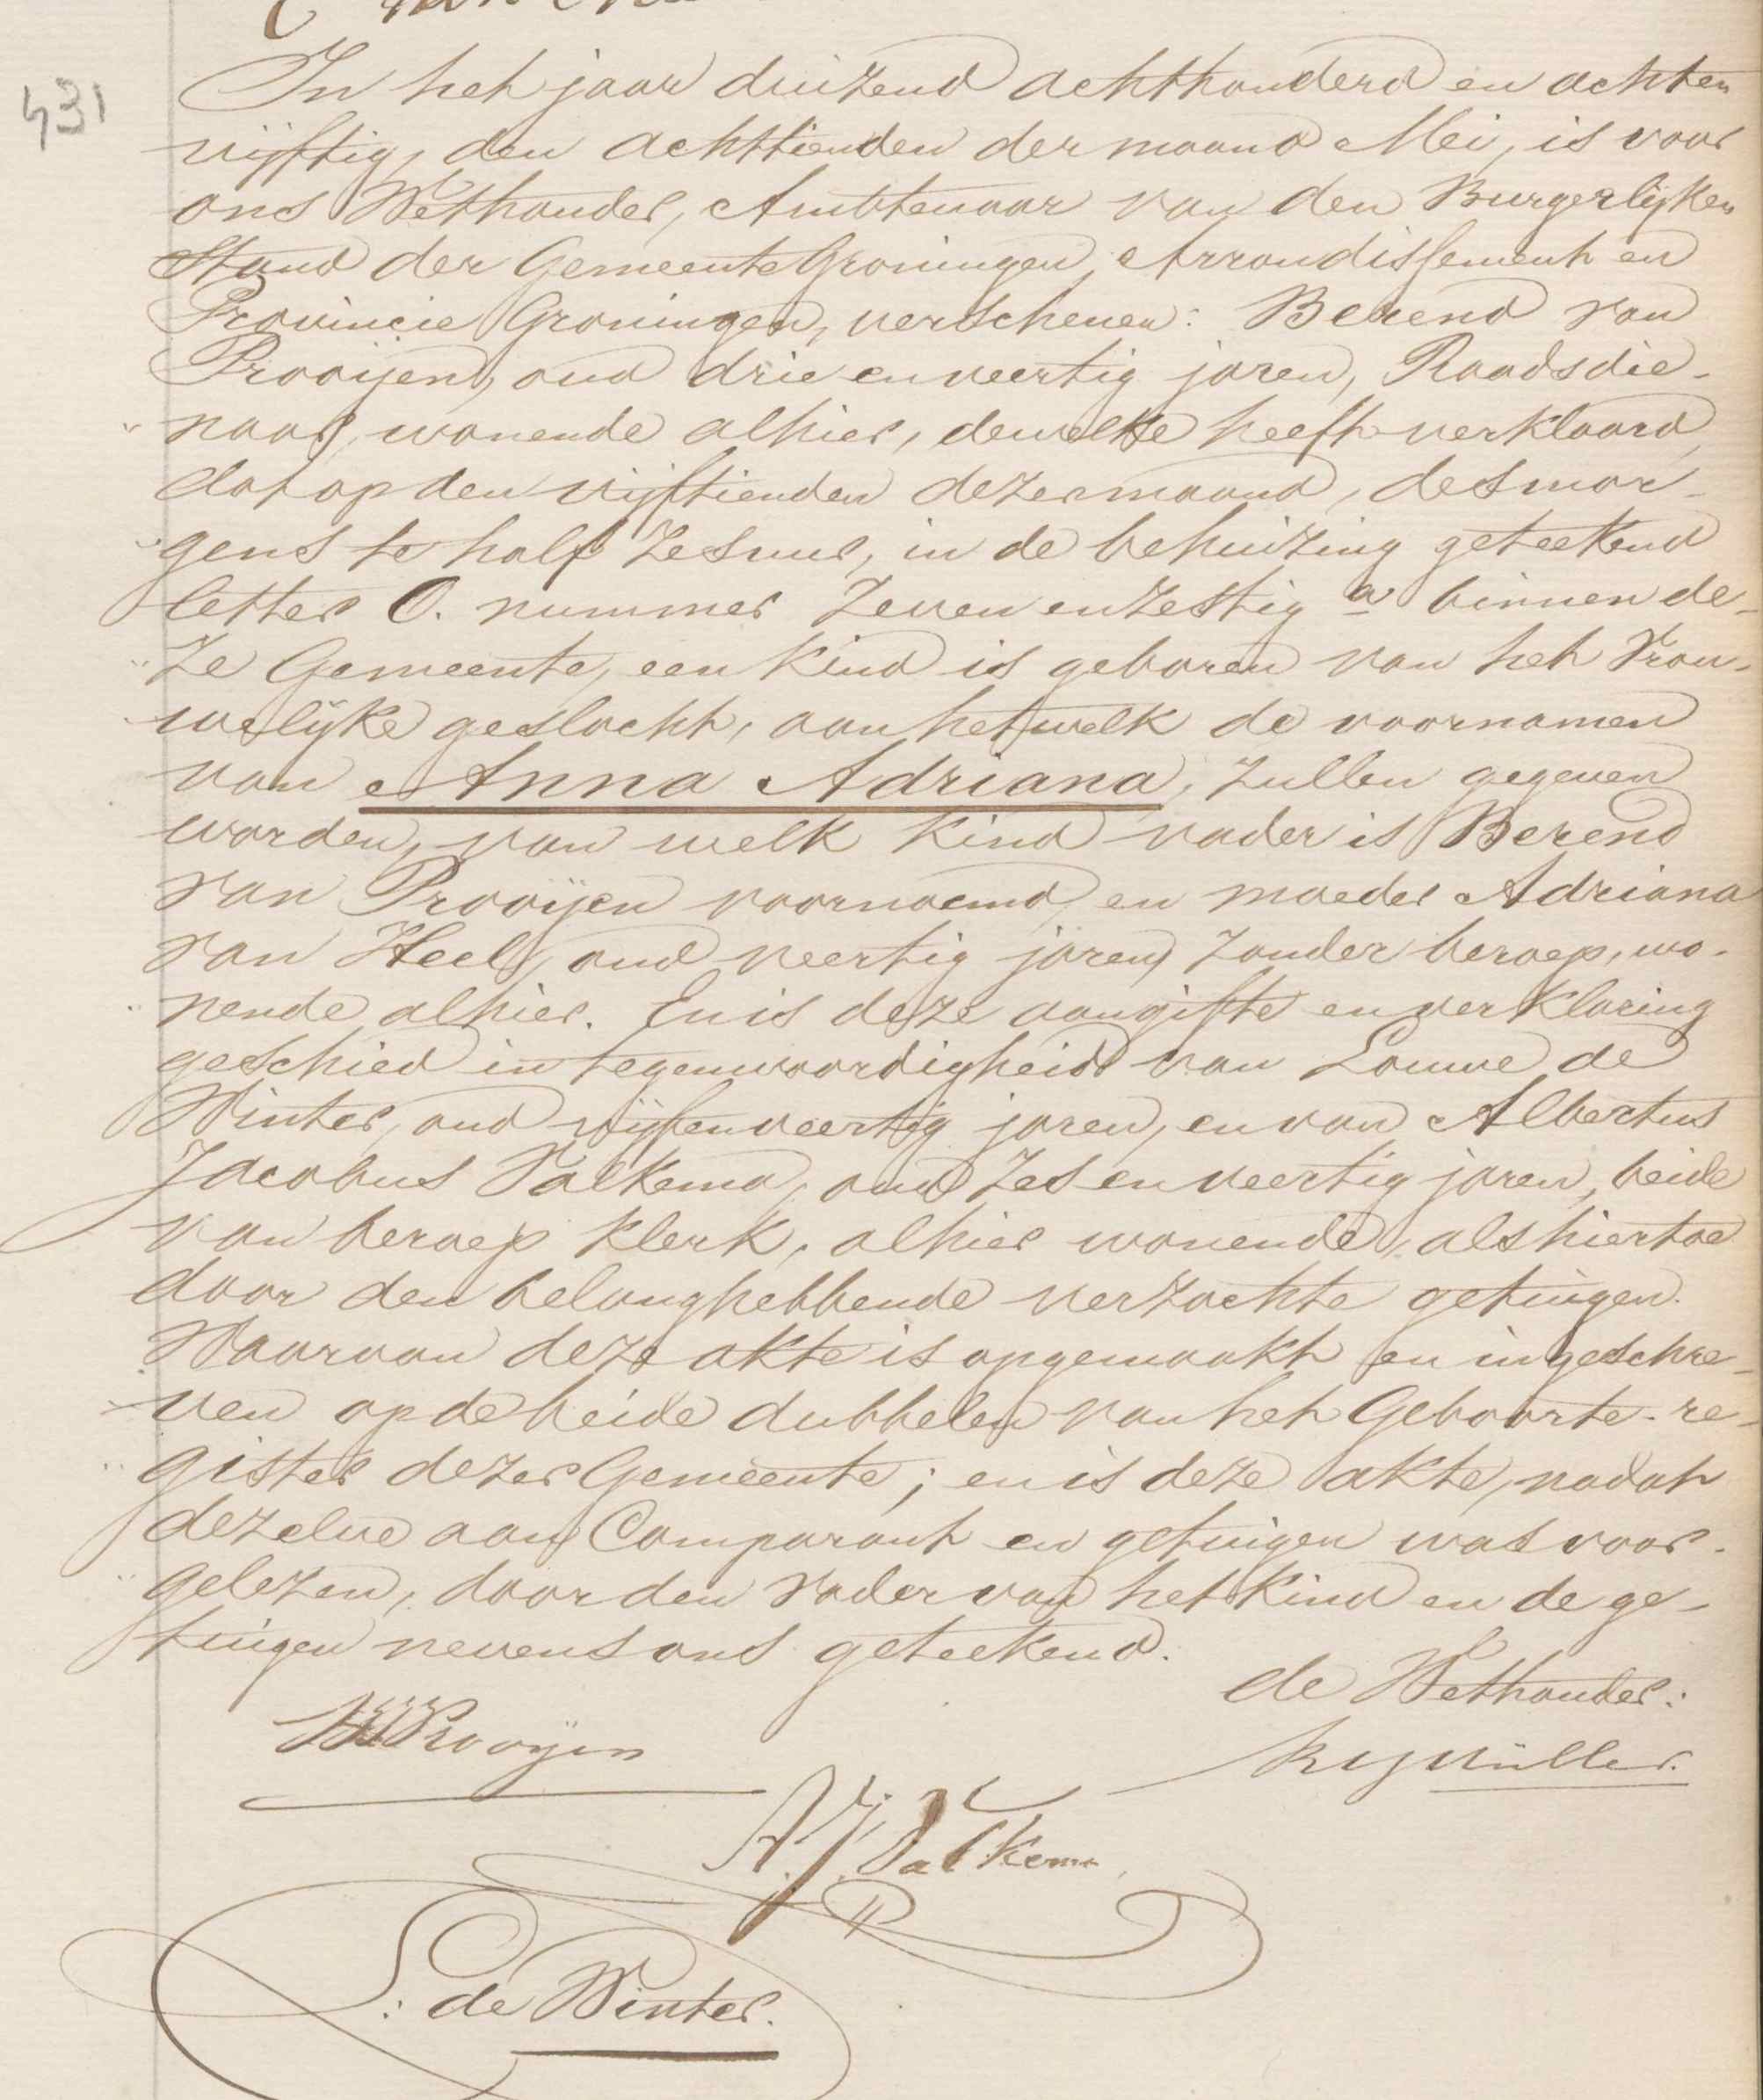 431
In het jaar duizend achthonderd en achten
vijftig, den achttienden der maand Mei, is voor
ons Wethouder, Ambtenaar van den Burgerlijken
Stand der Gemeente Groningen, Arrondissement en
Provincie Groningen, verschenen: Berend van
Prooijen, oud drie en veertig jaren, Raadsdie-
" naar, wonende alhier, dewelke heeft verklaard,
dat op den vijftienden dezer maand, des mor-
" gens te half zes uur, in de behuizing geteekend
letter O. nummer zeven en zestig a binnen de-
" ze Gemeente, een kind is geboren van het Vrou-
welijke geslacht, aan hetwelk de voornamen
van Anna Adriana, zullen gegeven
worden, van welk kind vader is Berend
van Prooijen voornoemd, en moeder Adriana
van Heel, oud veertig jaren, zonder beroep, wo-
" nende alhier. En is deze aangifte en verklaring
geschied in tegenwoordigheid van Louwe de
Winter, oud vijf en veertig jaren, en van Albertus
Jacobus Valkema, oud zes en veertig jaren, beide
van beroep klerk, alhier wonende, als hiertoe
door den belanghebbende verzochte getuigen.
Waarvan deze akte is opgemaakt en ingeschre-
ven op de beide dubbelen van het Geboorte-re-
" gister dezer Gemeente; en is deze akte, nadat
dezelve aan Comparant en getuigen was voor-
" gelezen, door den Vader van het kind en de ge-
tuigen nevens ons geteekend.
de Wethouder:
Prooijen
Müller.
A. J. Valkema
L: de Winter.